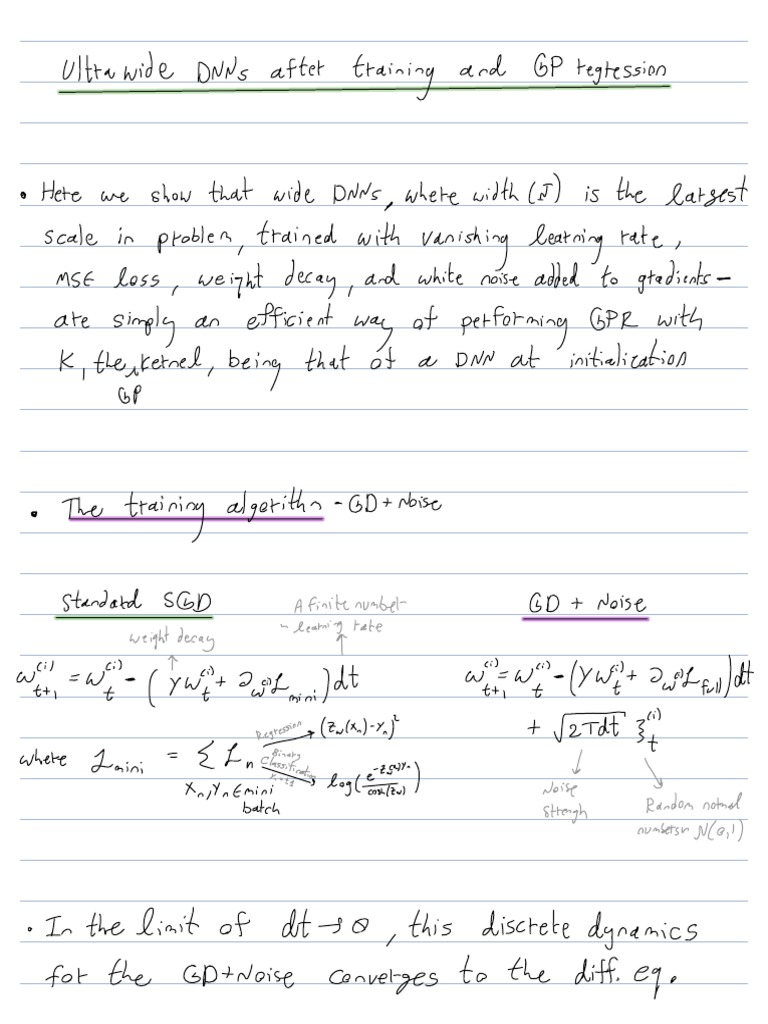 Ultra wide DNNs after training and GP regression
• Here we show that wide DNNs, where width (N) is the largest
scale in problem, trained with vanishing learning rate,
MSE loss, weight decay, and white noise added to gradients -
are simply an efficient way of performing GPR with
K, the GP kernel, being that of a DNN at initialization
• The training algorithm - GD + Noise
Standard SGD
A finite number - learning rate
GD + Noise
weight decay
w_{t+1}^{(i)} = w_t^{(i)} - (γ w_t^{(i)} + ∂_{w^{(i)}} L_{mini}) dt
w_{t+1}^{(i)} = w_t^{(i)} - (γ w_t^{(i)} + ∂_{w^{(i)}} L_{full}) dt
+ √(2Tdt) ξ_t^{(i)}
where L_{mini} = Σ L_n
x_n, y_n ∈ mini batch
Regression (z_w(x_n) - y_n)^2
Binary Classification
Noise Strengh
Random normal numbers N(0,1)
• In the limit of dt → 0, this discrete dynamics
for the GD+Noise converges to the diff. eq.